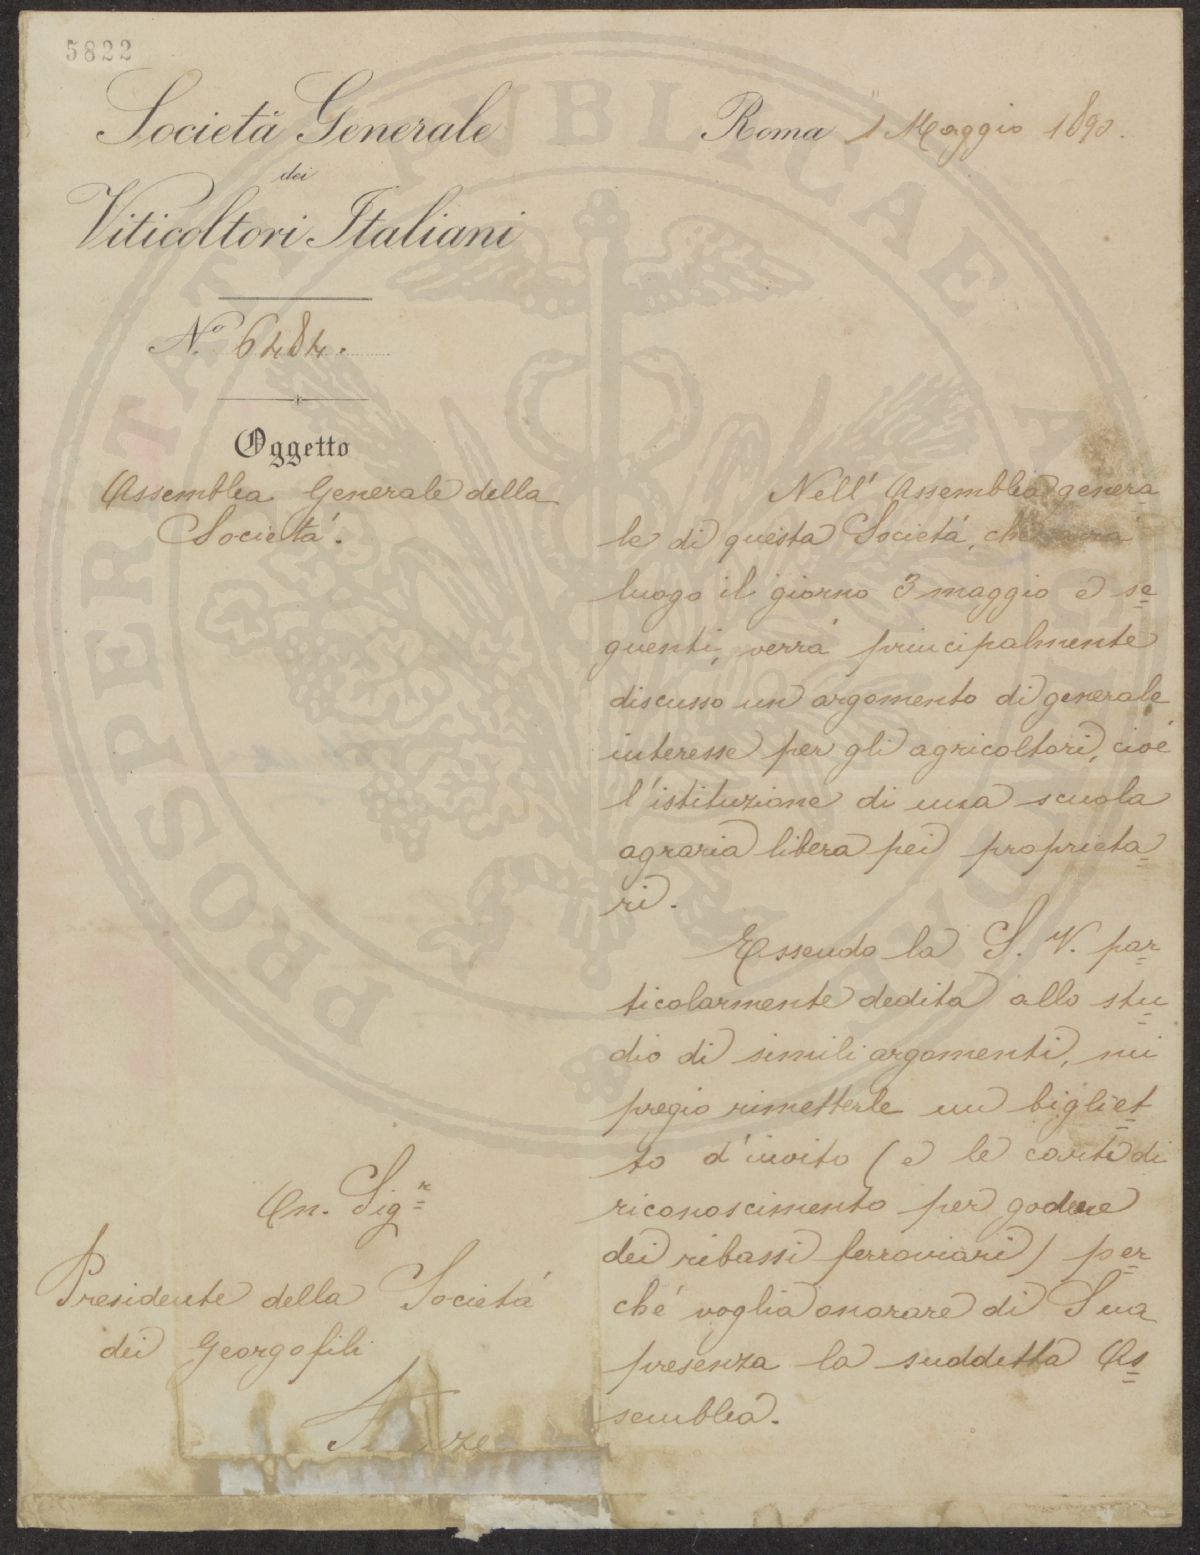 5822
Società Generale
dei
Viticoltori Italiani
Roma 1 Maggio 1890.
N.o 6484.
Oggetto
Assemblea Generale della
Societá.
Nell' Assemblea genera=
le di questa Societá, che avrá
luogo il giorno 3 maggio e se=
guenti, verrá principalmente
discusso un argomento di generale
interesse per gli agricoltori, cioé
l'istituzione di una scuola
agraria libera pei proprieta=
ri.
Essendo la S. V. par=
ticolarmente dedita allo stu=
dio di simili argomenti, mi
pregio rimetterle un bigliet=
to d'invito (e le carte di
riconoscimento per godere
dei ribassi ferroviari) per=
ché voglia onorare di Sua
presenza la suddetta As=
semblea.
On. Sig.r
Presidente della Societá
dei Georgofili
PROSPERITATI PUBLICAE AUGENDAE